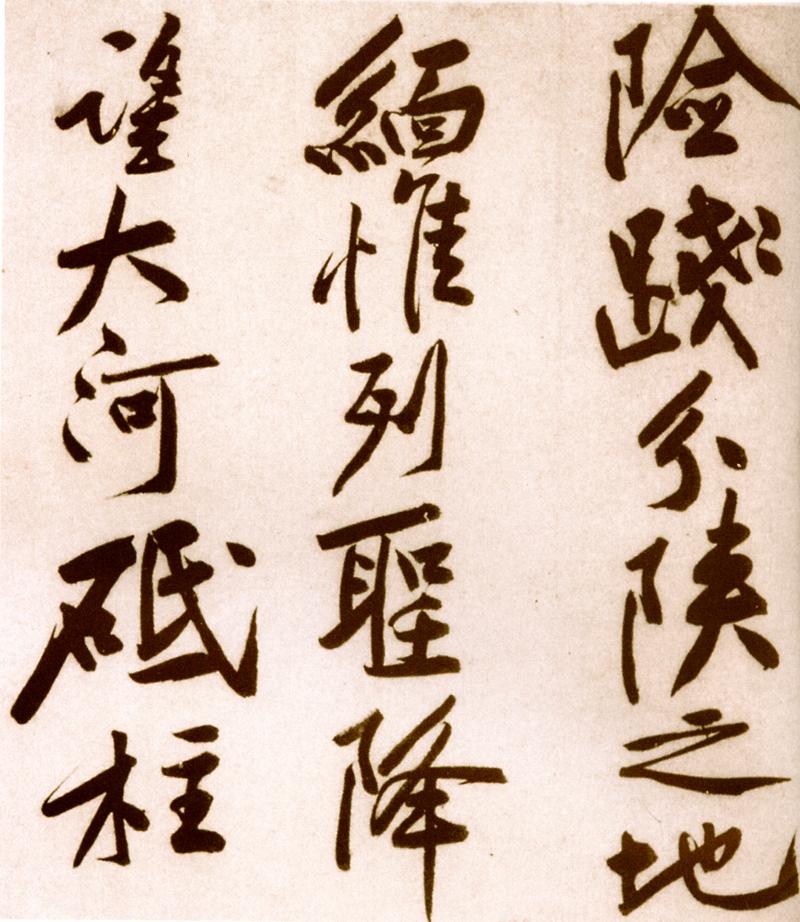 險踐分陝之地
緬惟列聖降
望大河砥柱